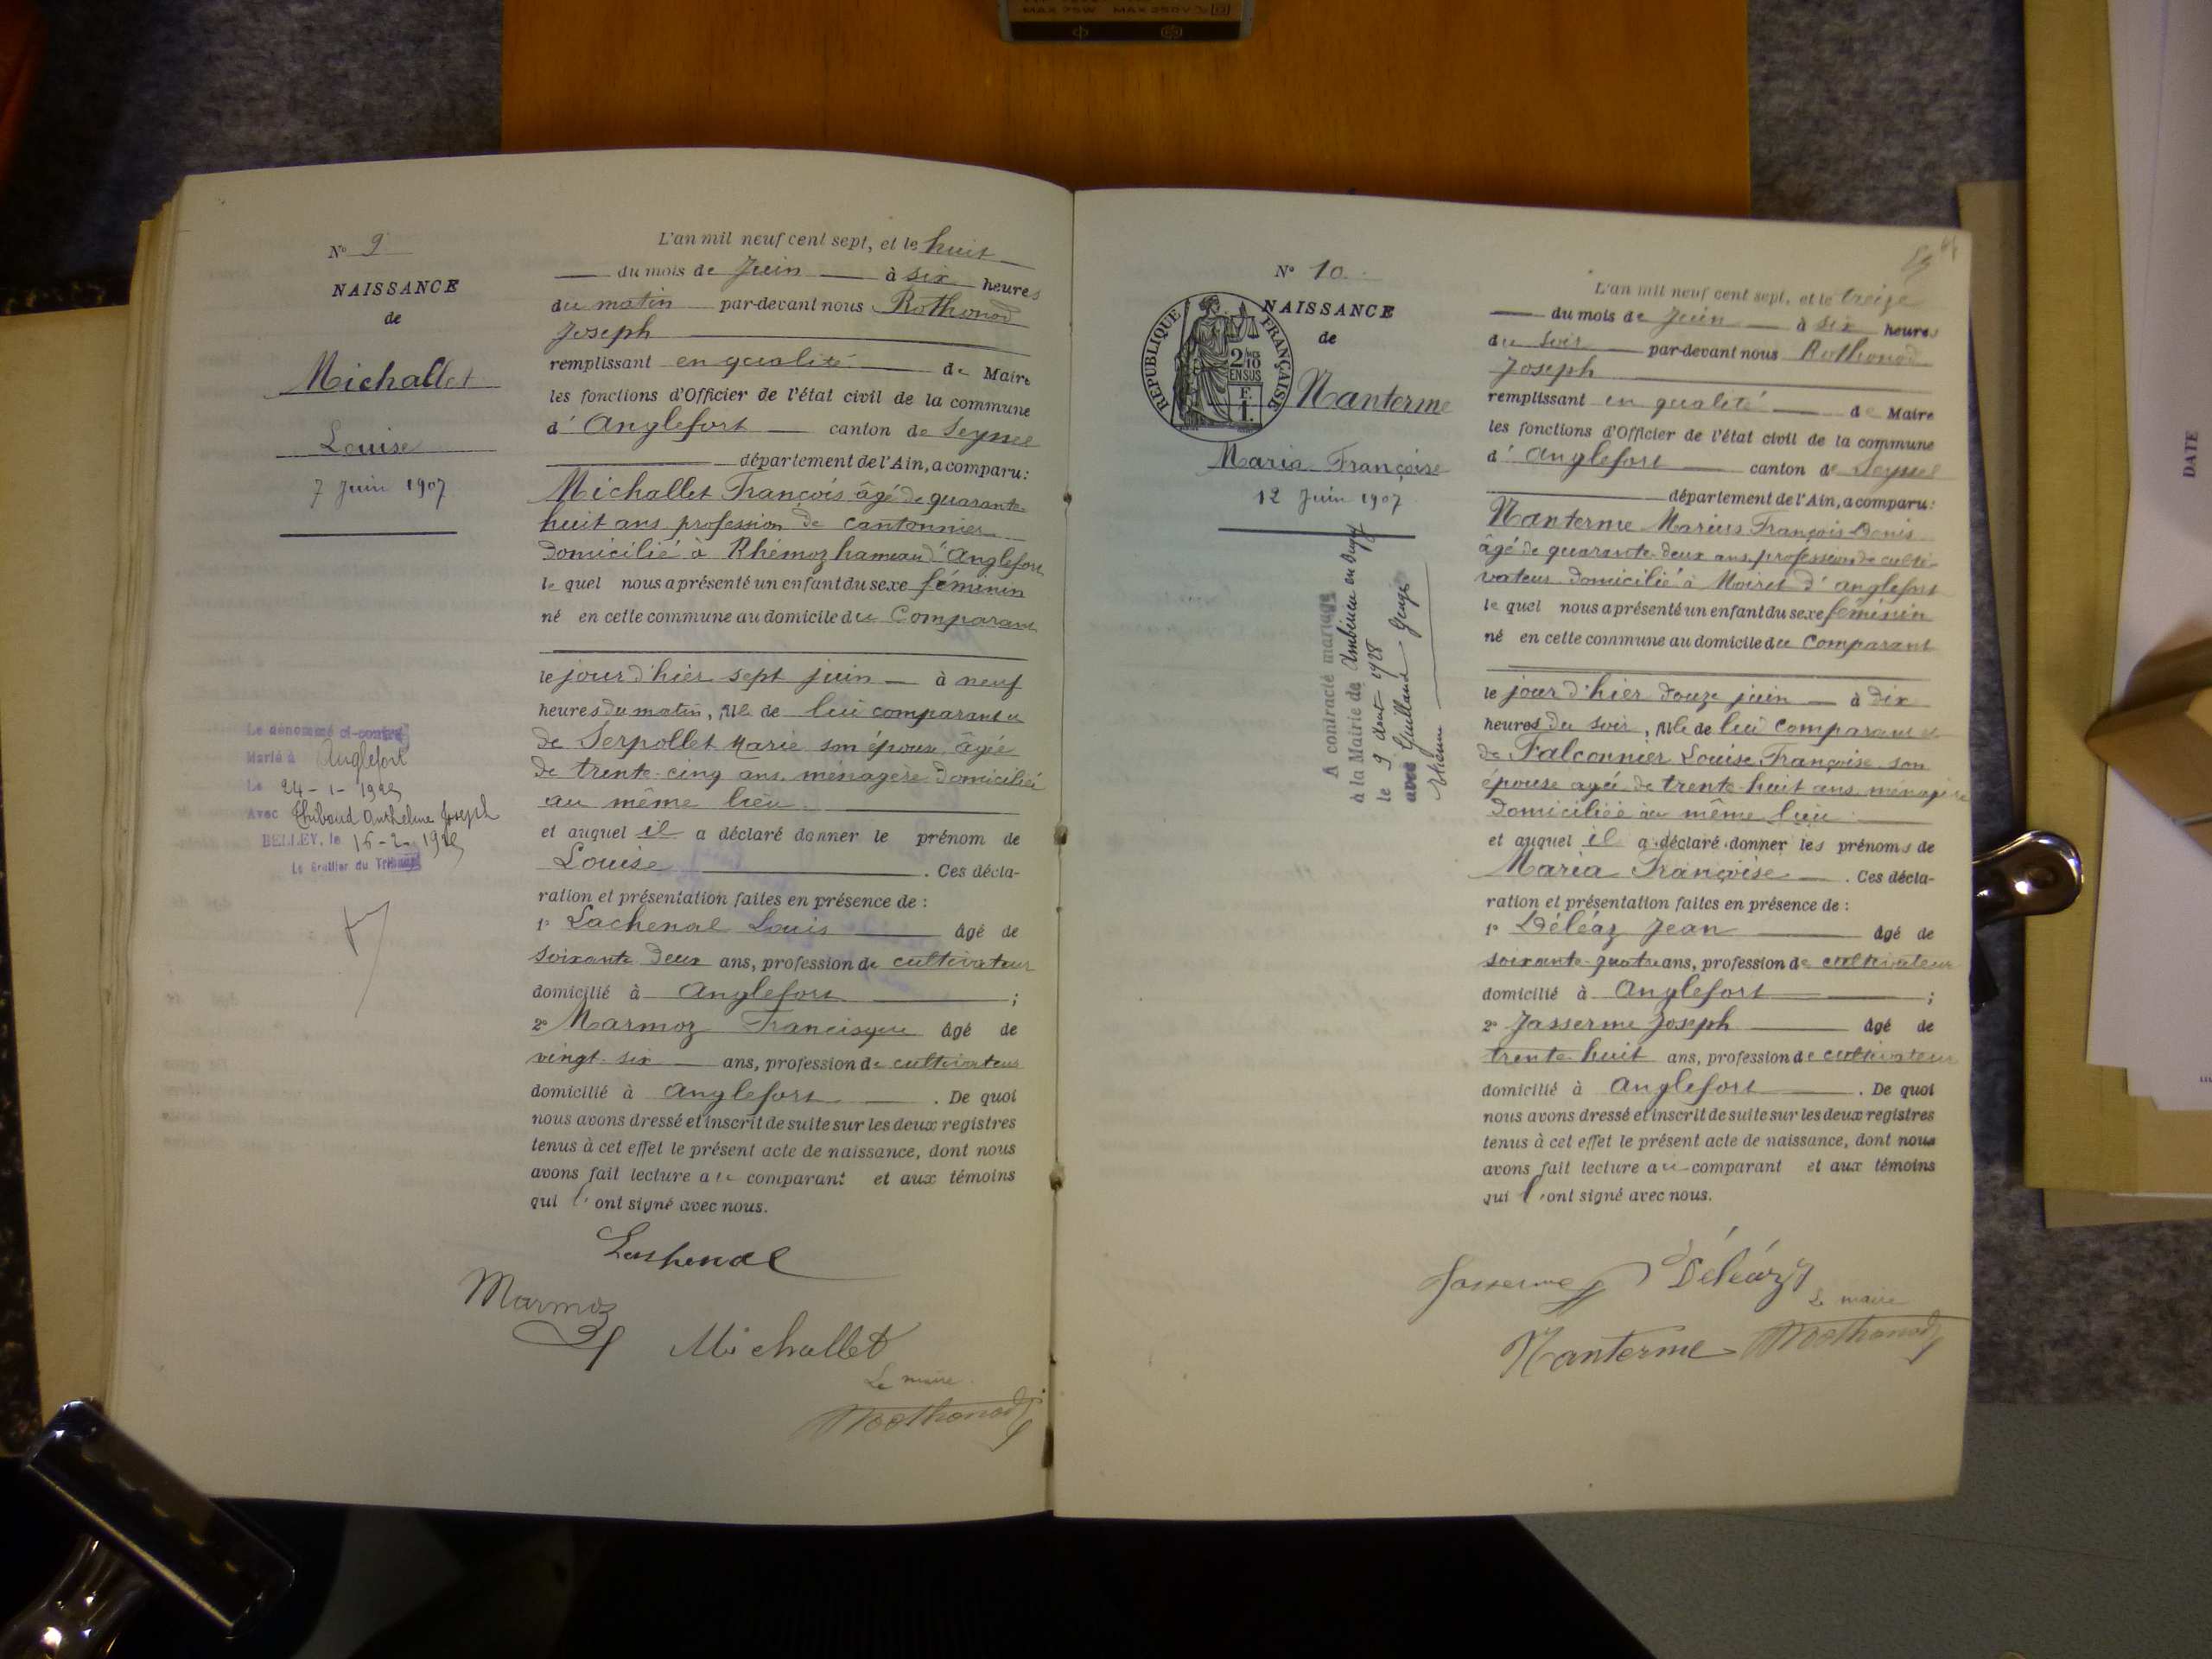 MAX 75W MAX 250V
N° 9
NAISSANCE
de
Michallet
Louise
7 Juin 1907
Le dénommé ci-contre
Marié à Anglefort
Le 24-1-1925
Avec Thibaud Anthelme Joseph
BELLEY, le 15-2-1925
Le Greffier du Tribunal
L'an mil neuf cent sept, et le huit
du mois de Juin à six heures
du matin par-devant nous Rothonod
Joseph
remplissant en qualité de Maire
les fonctions d'Officier de l'état civil de la commune
d' Anglefort canton de Seyssel
département de l'Ain, a comparu:
Michallet François âgé de quarante
huit ans profession de cantonnier
domicilié à Rhémoz hameau d'Anglefort
le quel nous a présenté un enfant du sexe féminin
né en cette commune au domicile du Comparant
le jour d'hier sept juin à neuf
heures du matin, fille de lui comparant et
de Serpollet Marie son épouse âgée
de trente-cinq ans ménagère domiciliée
au même lieu
et auquel il a déclaré donner le prénom de
Louise . Ces décla-
ration et présentation faites en présence de :
1° Lachenal Louis âgé de
soixante deux ans, profession de cultivateur
domicilié à Anglefort ;
2° Marmoz Francisque âgé de
vingt-six ans, profession de cultivateur
domicilié à Anglefort . De quoi
nous avons dressé et inscrit de suite sur les deux registres
tenus à cet effet le présent acte de naissance, dont nous
avons fait lecture au comparant et aux témoins
qui l'ont signé avec nous.
Lachenal
Marmoz
Michallet
Le maire
Rothonod
N° 10
NAISSANCE
de
RÉPUBLIQUE FRANÇAISE
2/10
EN SUS
F.
1.
Nanterme
Maria Françoise
12 Juin 1907
A contracté mariage
à la Mairie de Ambérieu en Bugey
le 9 août 1928
avec Guilland Georges
Etienne
L'an mil neuf cent sept, et le treize
du mois de Juin à six heures
du soir par-devant nous Rothonod
Joseph
remplissant en qualité de Maire
les fonctions d'Officier de l'état civil de la commune
d' Anglefort canton de Seyssel
département de l'Ain, a comparu:
Nanterme Marius François Denis
âgé de quarante-deux ans, profession de culti-
vateur domicilié à Moiret d'anglefort
le quel nous a présenté un enfant du sexe féminin
né en cette commune au domicile du Comparant
le jour d'hier douze juin à dix
heures du soir, fille de lui Comparant et
de Falconnier Louise Françoise son
épouse agée de trente-huit ans ménagère
domiciliée au même lieu
et auquel il a déclaré donner les prénoms de
Maria Françoise . Ces décla-
ration et présentation faites en présence de :
1° Déléaz Jean âgé de
soixante-quatre ans, profession de cultivateur
domicilié à Anglefort ;
2° Jasserme Joseph âgé de
trente huit ans, profession de cultivateur
domicilié à Anglefort . De quoi
nous avons dressé et inscrit de suite sur les deux registres
tenus à cet effet le présent acte de naissance, dont nous
avons fait lecture au comparant et aux témoins
qui l'ont signé avec nous.
Jasserme
Déléaz
Le maire
Nanterme
Rothonod
DATE